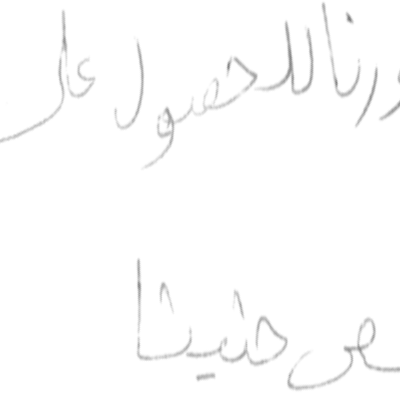 ورنا للحصول على
حثيثا